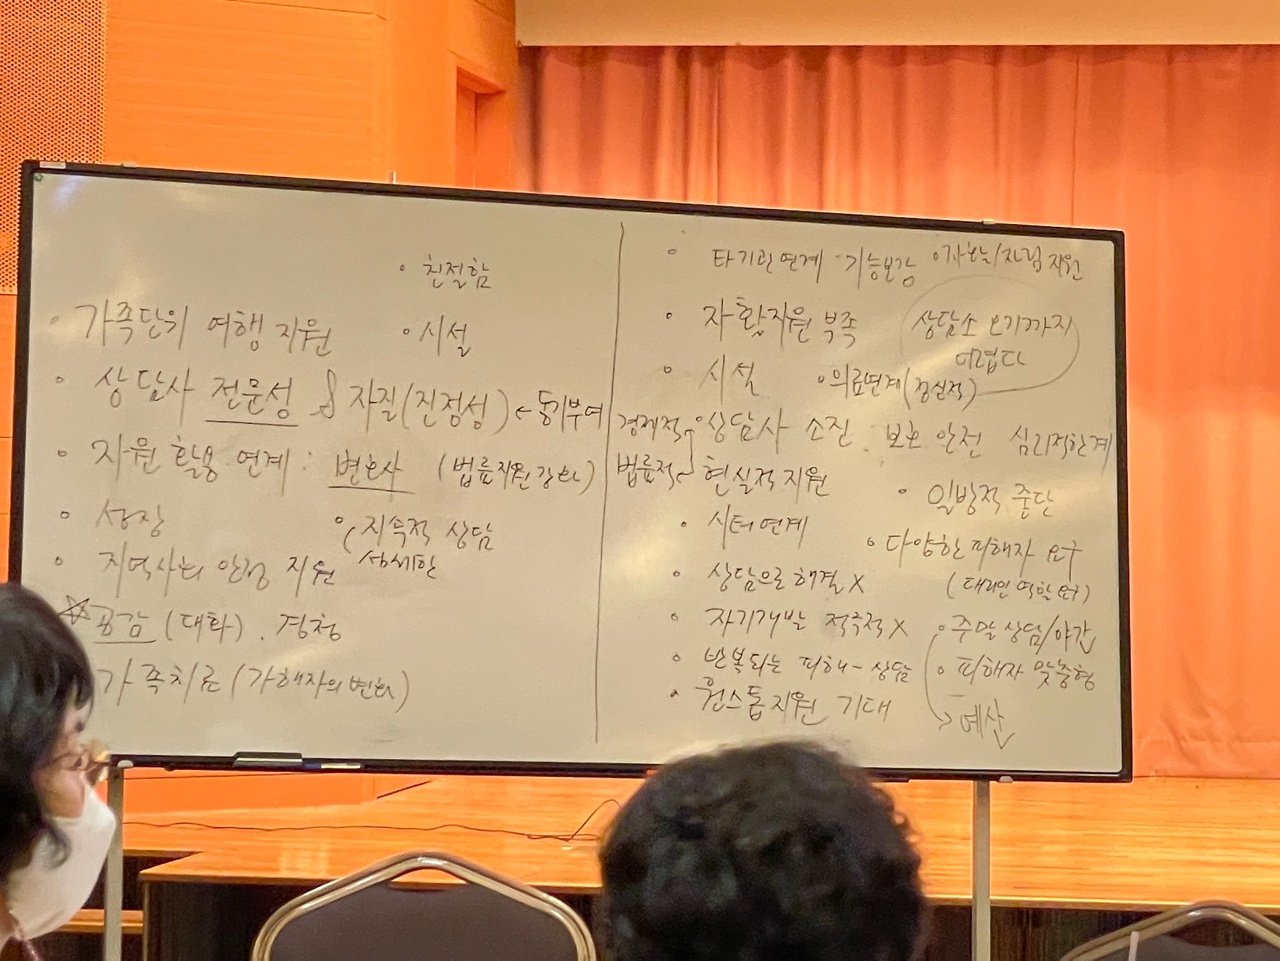 • 친절함
• 가족단위 여행 지원
• 시설
• 상담사 전문성 & 자질(진정성) ← 동기부여
• 자원 활용 연계 : 변호사 (법률지원 강화)
• 성장
• 지속적 상담
상세한
• 지역사회 안정 지원
☆ 공감 (대화) . 경청
가족치료 (가해자의 변화)
• 타기관연계
• 기능보강
• 자활/자립 지원
• 자활지원 부족
상담소 오기까지
어렵다
• 시설
• 의료연계(정신적)
경제적
• 상담사 소진
• 보호 안전
심리적한계
법률적
현실적 지원
• 일방적 중단
• 쉼터연계
• 다양한 피해자 요구
(대리인 역할 요구)
• 상담으로 해결 X
• 자기개발 적극적 X
• 주말 상담/야간
• 반복되는 피해 - 상담
• 피해자 맞춤형
• 원스톱지원 기대
→ 예산